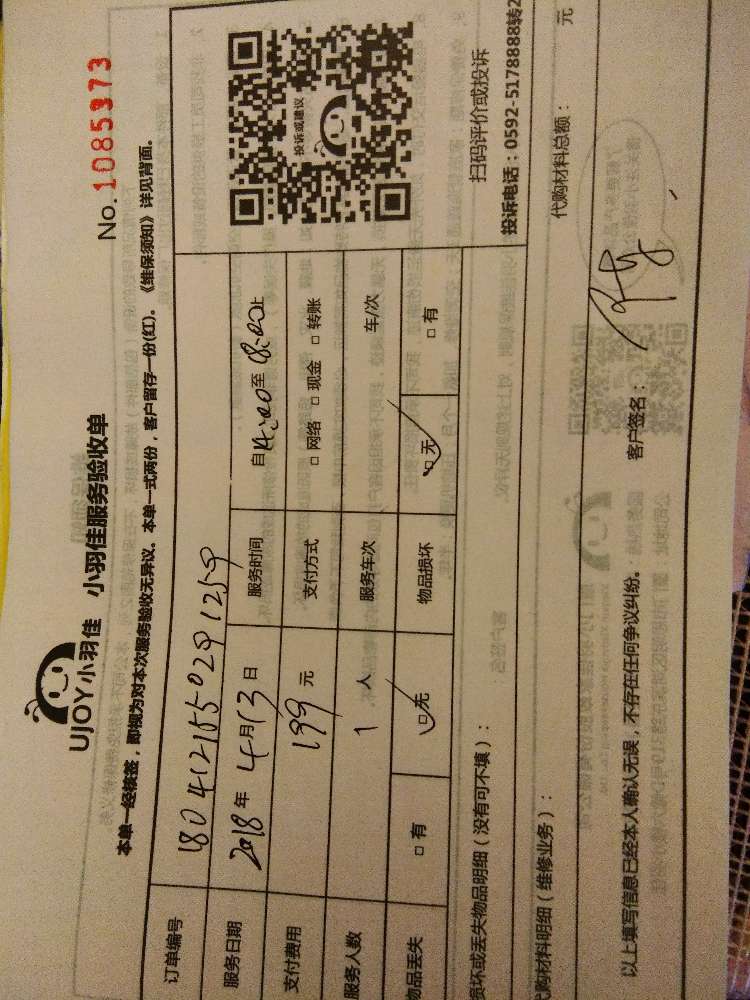 UJOY小羽佳 小羽佳服务验收单
No. 1085373
本单一经核签，即视为对本次服务验收无异议。本单一式两份，客户留存一份(红)。《维保须知》详见背面。
订单编号 180412155029125 9
服务日期 2018年4月13日 服务时间 自14:00至18:00止
支付费用 199元 支付方式 □网络 □现金 □转账
服务人数 1人 服务车次 车/次
物品丢失 □有 □无 物品损坏 □无 □有
投诉或建议
扫码评价或投诉
投诉电话：0592-5178888转2
损坏或丢失物品明细（没有可不填）：
购材料明细（维修业务）： 代购材料总额： 元
以上填写信息已经本人确认无误，不存在任何争议纠纷。 客户签名：